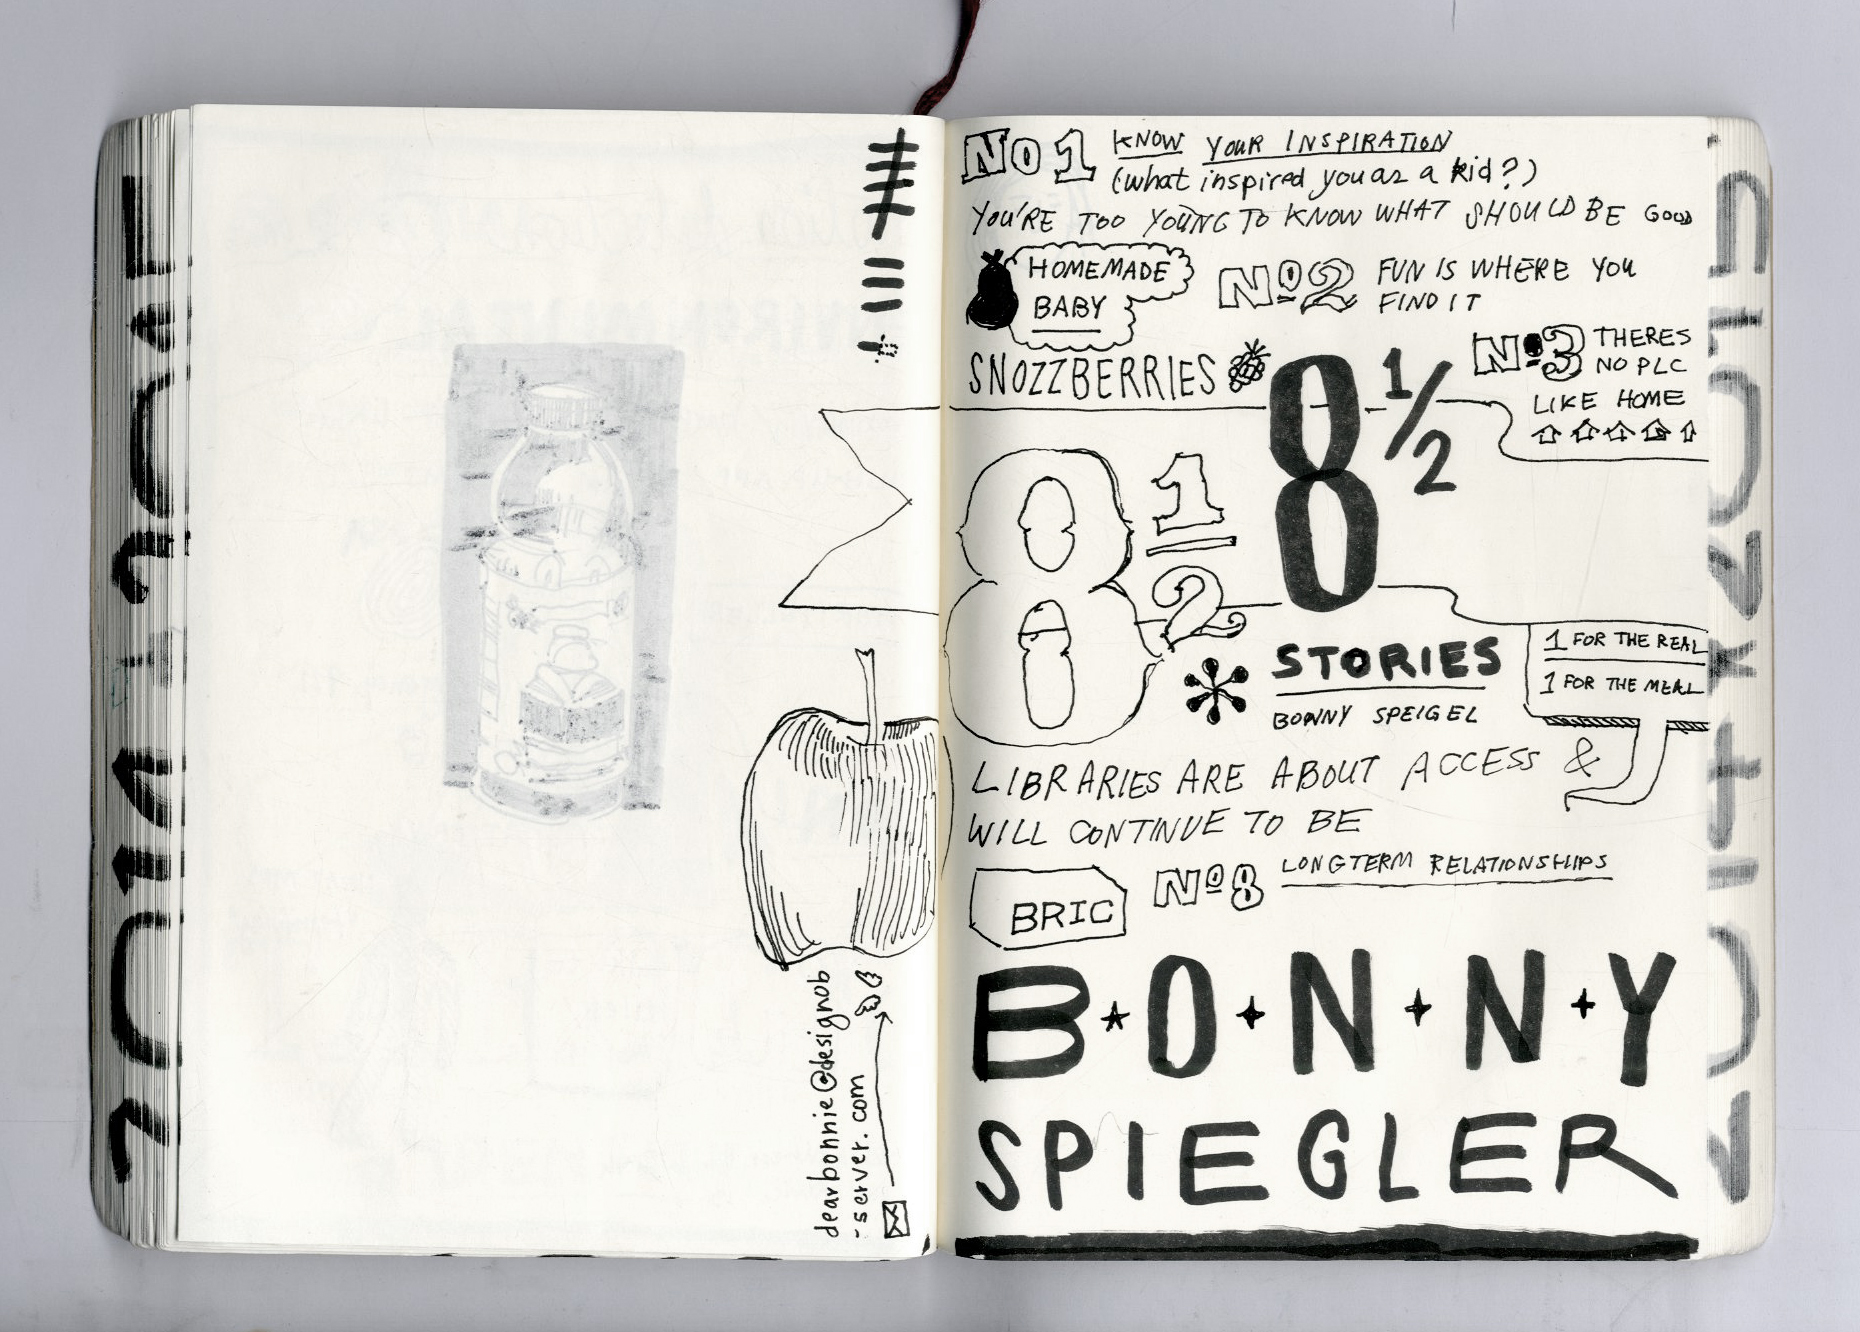 dearbonnie@designob
-server.com
No 1 KNOW YOUR INSPIRATION
(what inspired you as a kid?)
YOU'RE TOO YOUNG TO KNOW WHAT SHOULD BE GOOD
HOMEMADE
BABY
No2 FUN IS WHERE YOU
FIND IT
SNOZZBERRIES
No3 THERES
NO PLC
LIKE HOME
8 1/2
8 1/2
STORIES
BONNY SPEIGEL
1 FOR THE REAL
1 FOR THE MEAL
LIBRARIES ARE ABOUT ACCESS &
WILL CONTINUE TO BE
BRIC
No8 LONGTERM RELATIONSHIPS
BONNY
SPIEGLER